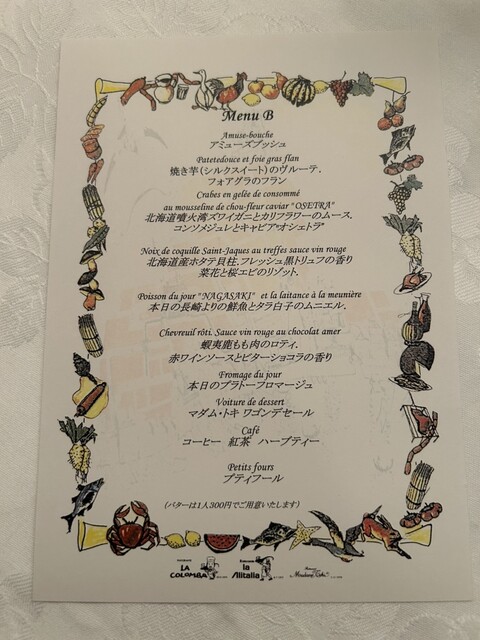 Menu B
Amuse-bouche
アミューズブッシュ
Patetedouce et foie gras flan
焼き芋(シルクスイート)のヴルーテ.
フォアグラのフラン
Crabes en gelée de consommé
au mousseline de chou-fleur caviar "OSETRA"
北海道噴火湾ズワイガニとカリフラワーのムース.
コンソメジュレとキャビア"オシェトラ"
Noix de coquille Saint-Jaques au treffes sauce vin rouge
北海道産ホタテ貝柱.フレッシュ黒トリュフの香り
菜花と桜エビのリゾット.
Poisson du jour "NAGASAKI" et la laitance à la meunière
本日の長崎よりの鮮魚とタラ白子のムニエル.
Chevreuil rôti. Sauce vin rouge au chocolat amer
蝦夷鹿もも肉のロティ.
赤ワインソースとビターショコラの香り
Fromage du jour
本日のプラトーフロマージュ
Voiture de dessert
マダム・トキ ワゴンデセール
Café
コーヒー 紅茶 ハーブティー
Petits fours
プティフール
(バターは1人300円でご用意いたします)
LA COLOMBA
la Alitalia
Madame Toki